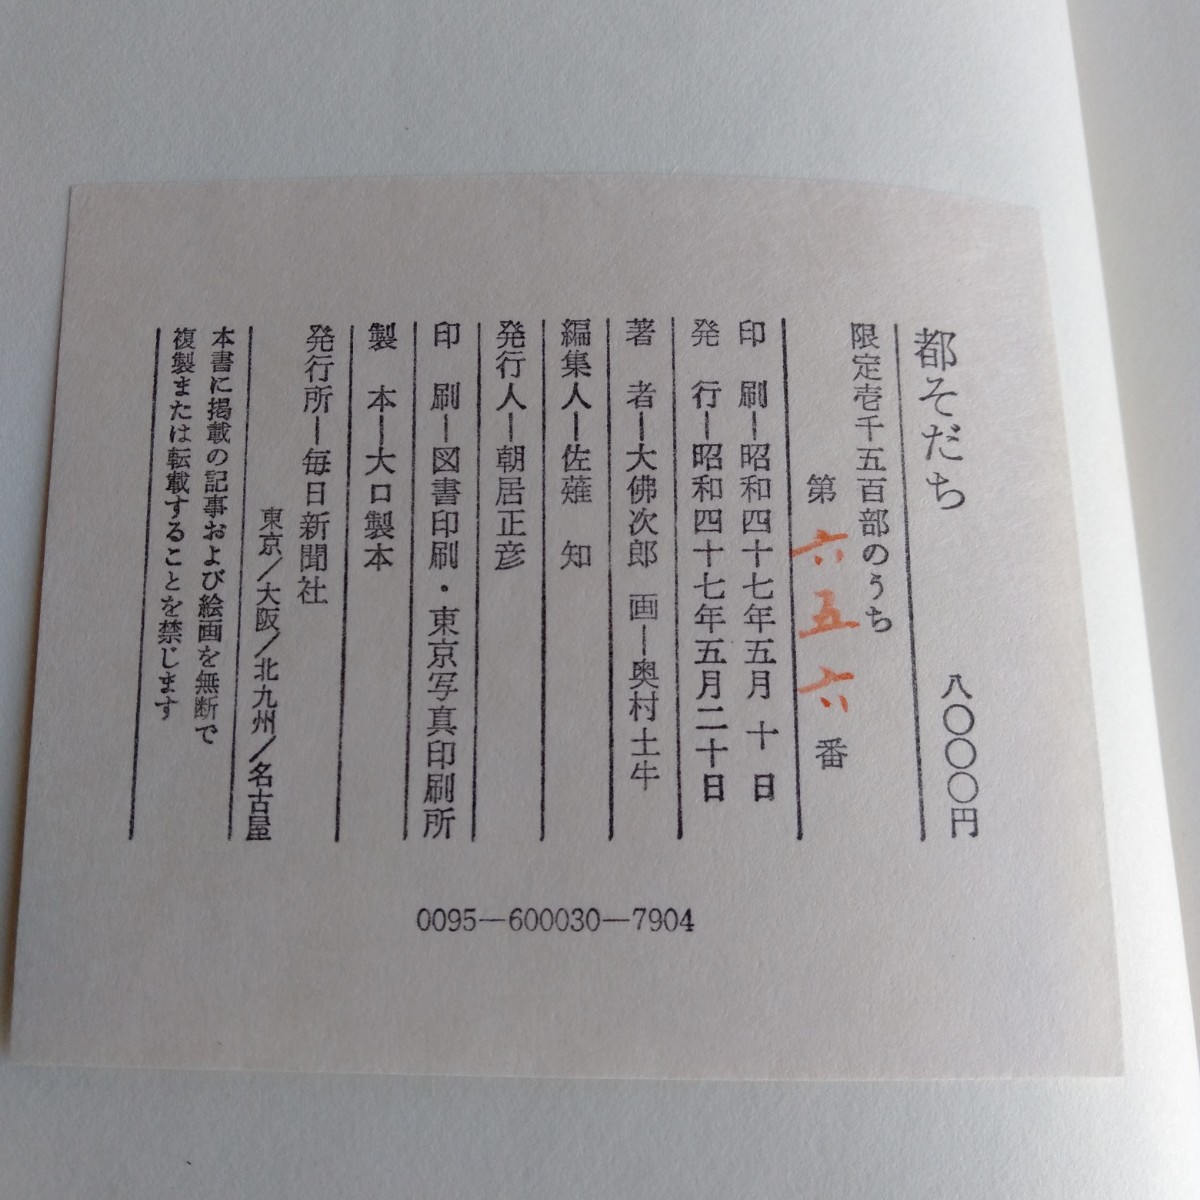 都そだち 八〇〇〇円
限定壱千五百部のうち
第六五六番
印刷―昭和四十七年五月十日
発行―昭和四十七年五月二十日
著者―大佛次郎 画―奥村土牛
編集人―佐薙 知
発行人―朝居正彦
印刷―図書印刷・東京写真印刷所
製本―大口製本
発行所―毎日新聞社
東京/大阪/北九州/名古屋
本書に掲載の記事および絵画を無断で
複製または転載することを禁じます
0095―600030―7904